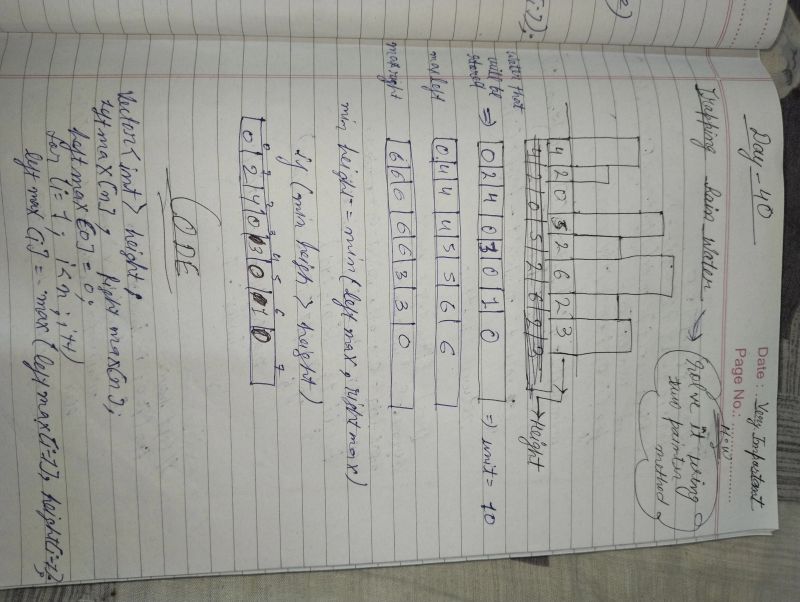 Date : Very Important
Page No.:
Day - 40
H.W
Trapping Rain Water
Solve it using
two pointer
method
4 2 0 5 2 6 2 3
4 2 0 5 2 6 2 3 → Height
water that
will be
stored ⇒ 0 2 4 0 3 0 1 0 ⇒ unit = 10
max left 0 4 4 4 5 5 6 6
max right 6 6 6 6 6 3 3 0
min height = min(left max, right max)
if (min height > height)
0 1 2 3 4 5 6 7
0 2 4 0 3 0 1 0
CODE
Vector<int> height;
left max [0] = 0;
for (i=1; i<n; i++)
left max [i] = max (left max [i-1], height [i-1]);